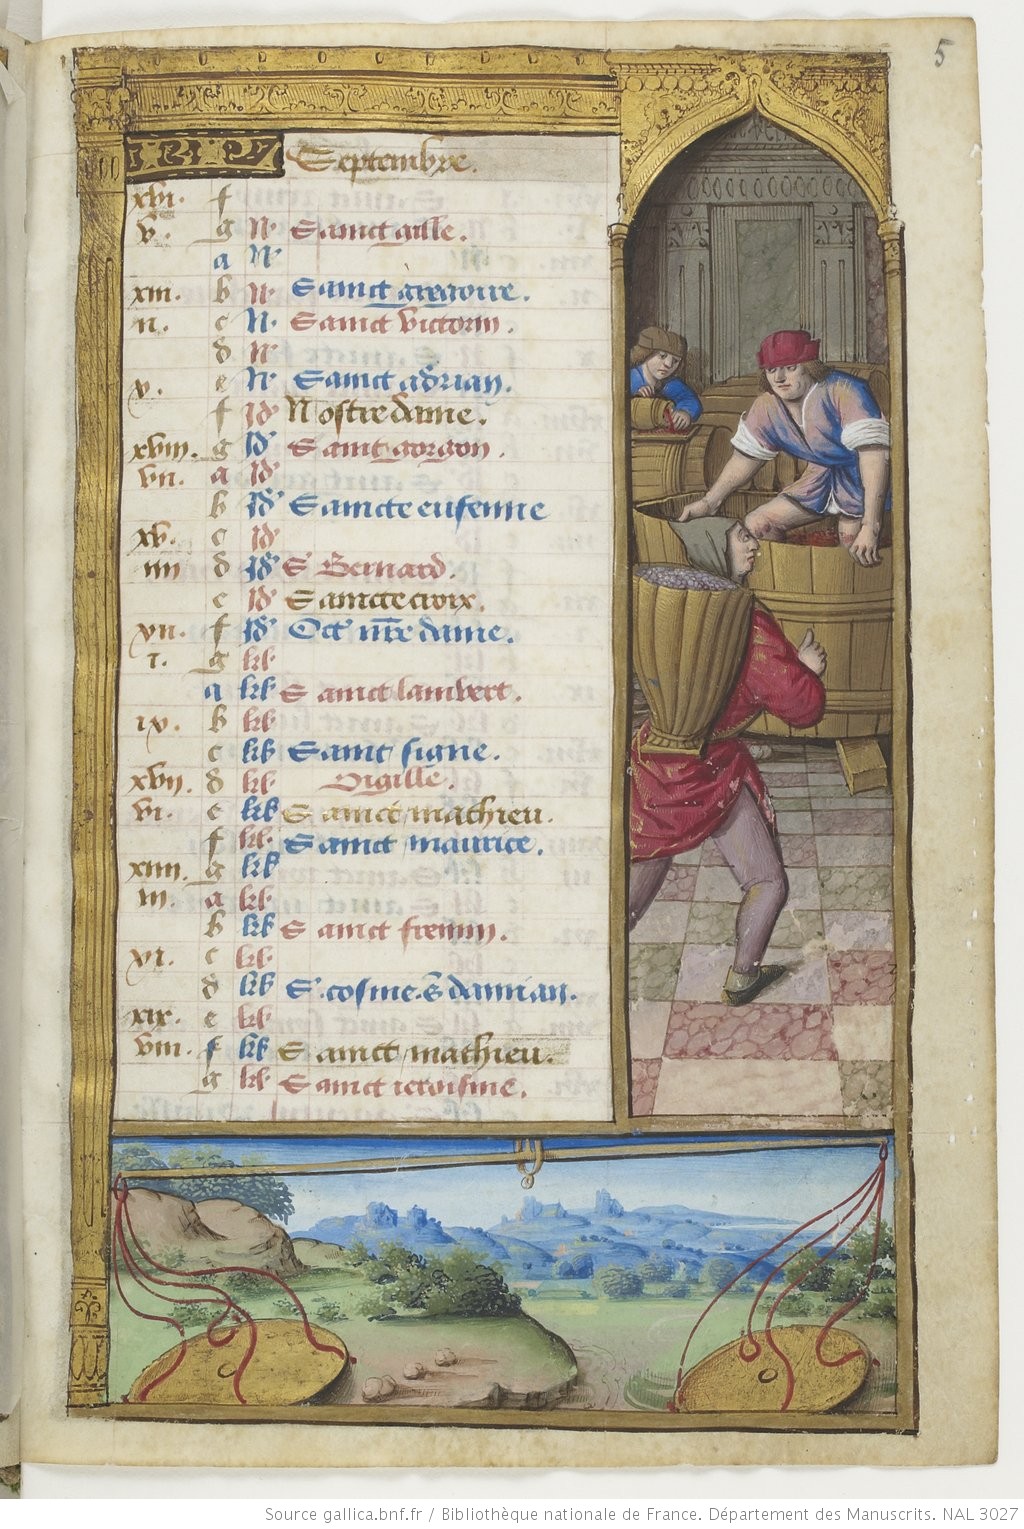 5
Septembre.
xvi. f
v. g N. Sainct gille.
a N.
xiii. b N. Sainct gregoire.
ii. c N. Sainct victorin.
d N.
x. e N. Sainct adrian.
f Id. Nostre dame.
xviii. g Id. Sainct gorgon.
vii. a Id.
b Id. Saincte eufemie
xv. c Id.
iiii d Id. S Bernard.
e Id. Saincte croix.
xii. f Id. Oct nre dame.
i. g kl.
a kl. Sainct lambert.
ix. b kl.
c kl. Sainct signe.
xvii. d kl. Vigille.
vi. e kl. Sainct mathieu.
f kl. Sainct maurice.
xiiii. g kl.
iii. a kl.
b kl. Sainct fremin.
xi. c kl.
d kl. S. cosme. & damian.
xix. e kl.
viii. f kl. Sainct mathieu.
g kl. Sainct ieroisme.
Source gallica.bnf.fr / Bibliothèque nationale de France. Département des Manuscrits. NAL 3027